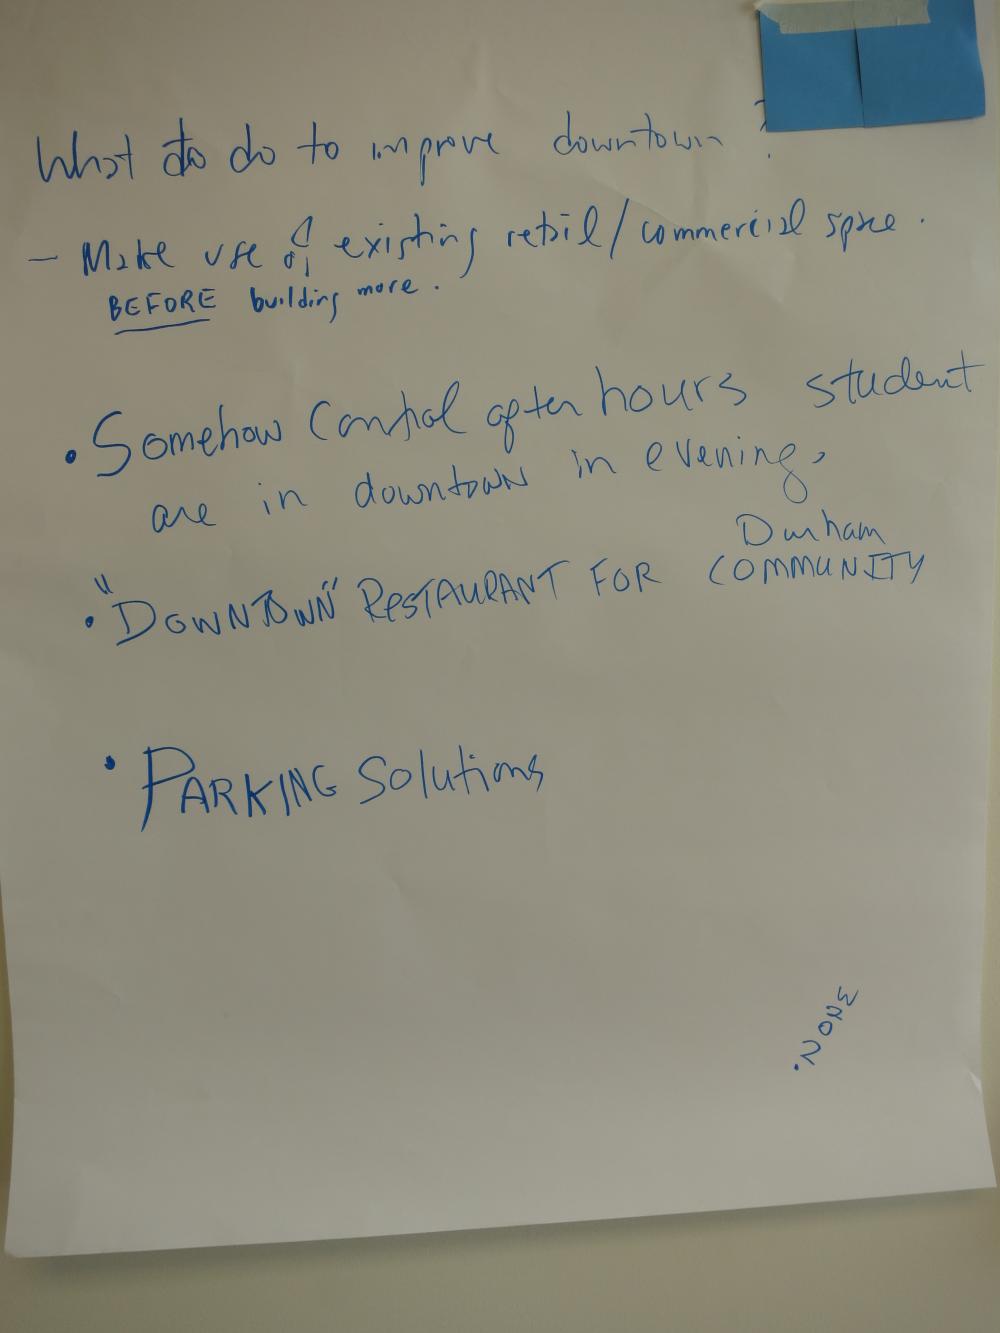 What to do to improve downtown?
- Make use of existing retail/commercial space.
BEFORE building more.
• Somehow Control after hours student
are in downtown in evening,
Durham
• "DOWNTOWN" RESTAURANT FOR COMMUNITY
• PARKING Solutions
• ZONE